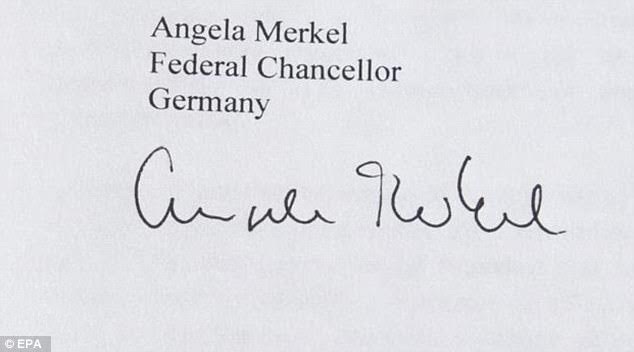 Angela Merkel
Federal Chancellor
Germany
Angela Merkel
© EPA